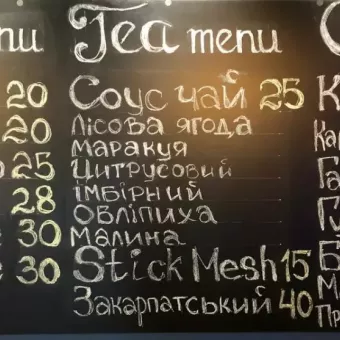 nu
20
20
25
28
30
30
Tea menu
Соус чай 25
Лісова ягода
Маракуя
Цитрусовий
імбірний
обліпиха
малина
Stick Mesh 15
Закарпатський 40